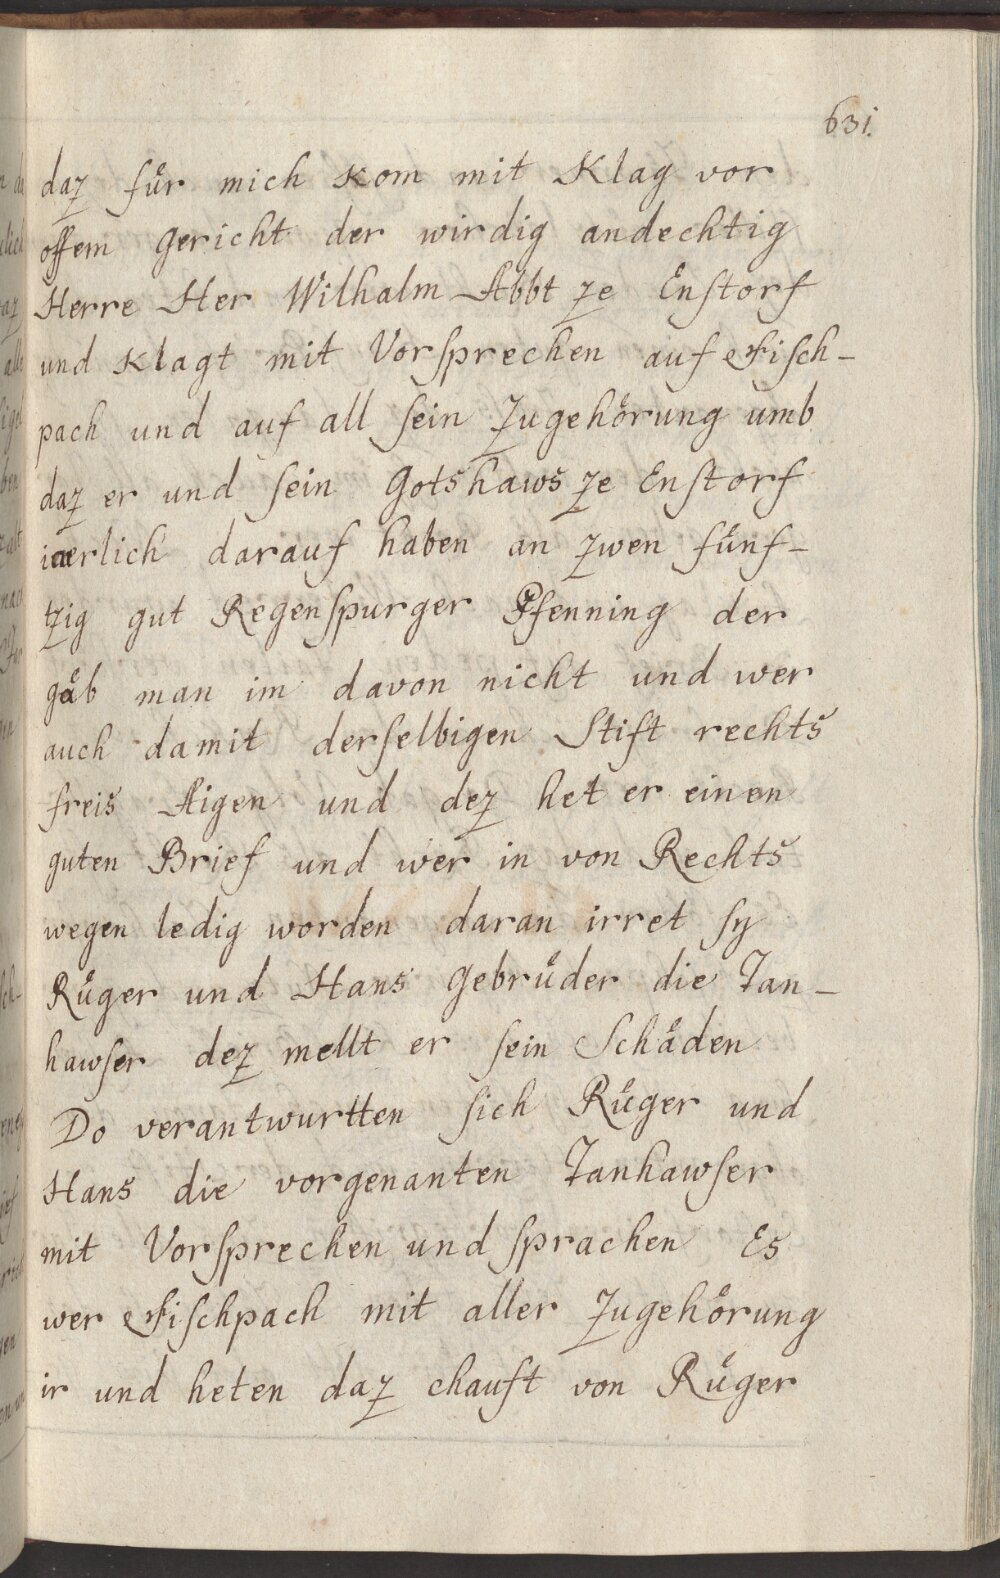 631.
daz für mich kom mit Klag vor
offem Gericht der wirdig andechtig
Herre Her Wilhalm Abbt ze Enstorf
und Klagt mit Vorsprechen auf Fisch-
pach und auf all sein Zugehörung umb
daz er und sein Gotshaws ze Enstorf
iaerlich darauf haben an zwen fünf-
tzig gut Regenspurger Pfenning der
gäb man im davon nicht und wer
auch damit derselbigen Stift rechts
freis Aigen und dez het er einen
guten Brief und wer in von Rechts
wegen ledig worden daran irret sy
Rüger und Hans Gebrüder die Tan-
hawser dez mellt er sein Schäden
Do verantwurtten sich Rüger und
Hans die vorgenanten Tanhawser
mit Vorsprechen und sprachen Es
wer Fischpach mit aller Zugehörung
ir und heten daz chauft von Rüger